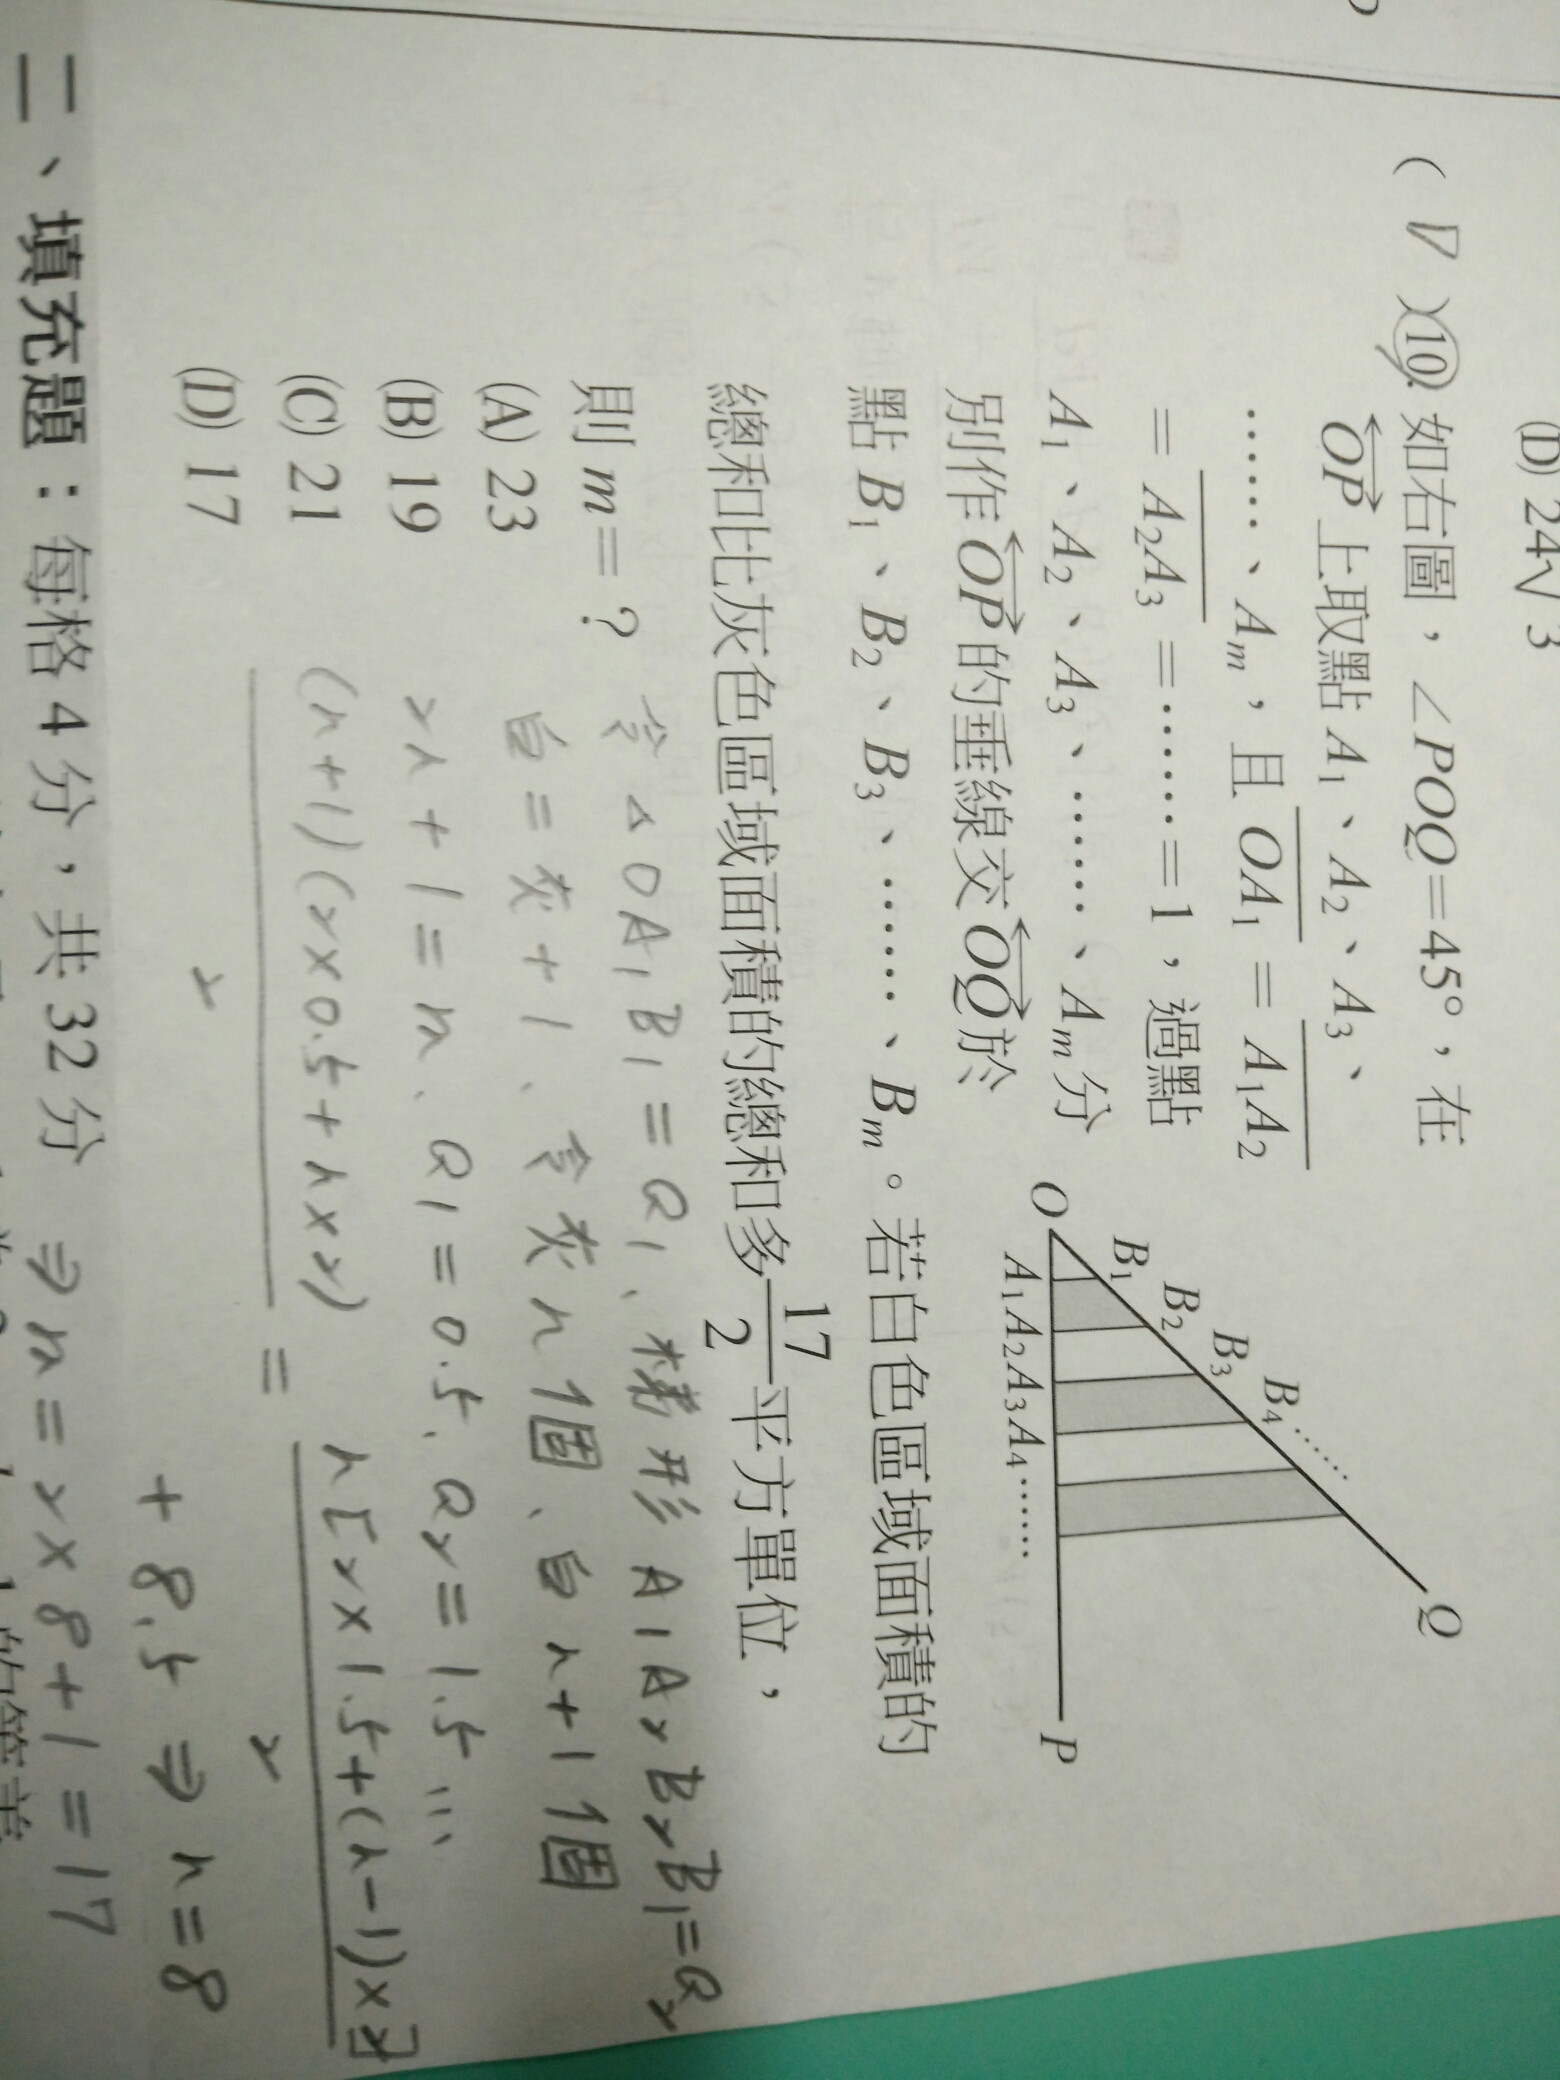 (D) 24√3
( D ) 10. 如右圖，∠POQ=45°，在
OP 上取點 A₁、A₂、A₃、
……、Aₘ，且 OA₁ = A₁A₂
= A₂A₃ =……=1，過點
A₁、A₂、A₃、……、Aₘ分
別作OP的垂線交OQ於
點 B₁、B₂、B₃、……、Bₘ。若白色區域面積的
總和比灰色區域面積的總和多 17/2 平方單位，
則 m=？
(A) 23
(B) 19
(C) 21
(D) 17
O
B₁
B₂
B₃
B₄……
Q
A₁A₂A₃A₄……
P
令△OA₁B₁=a₁、梯形A₁A₂B₂B₁=a₂
白=灰+1、令灰n個、白n+1個
2n+1=m、a₁=0.5、a₂=1.5…
(n+1)(2×0.5+n×2)/2 = n[2×1.5+(n-1)×2]/2
+8.5⇒n=8
⇒m=2×8+1=17
二、填充題：每格 4 分，共 32 分